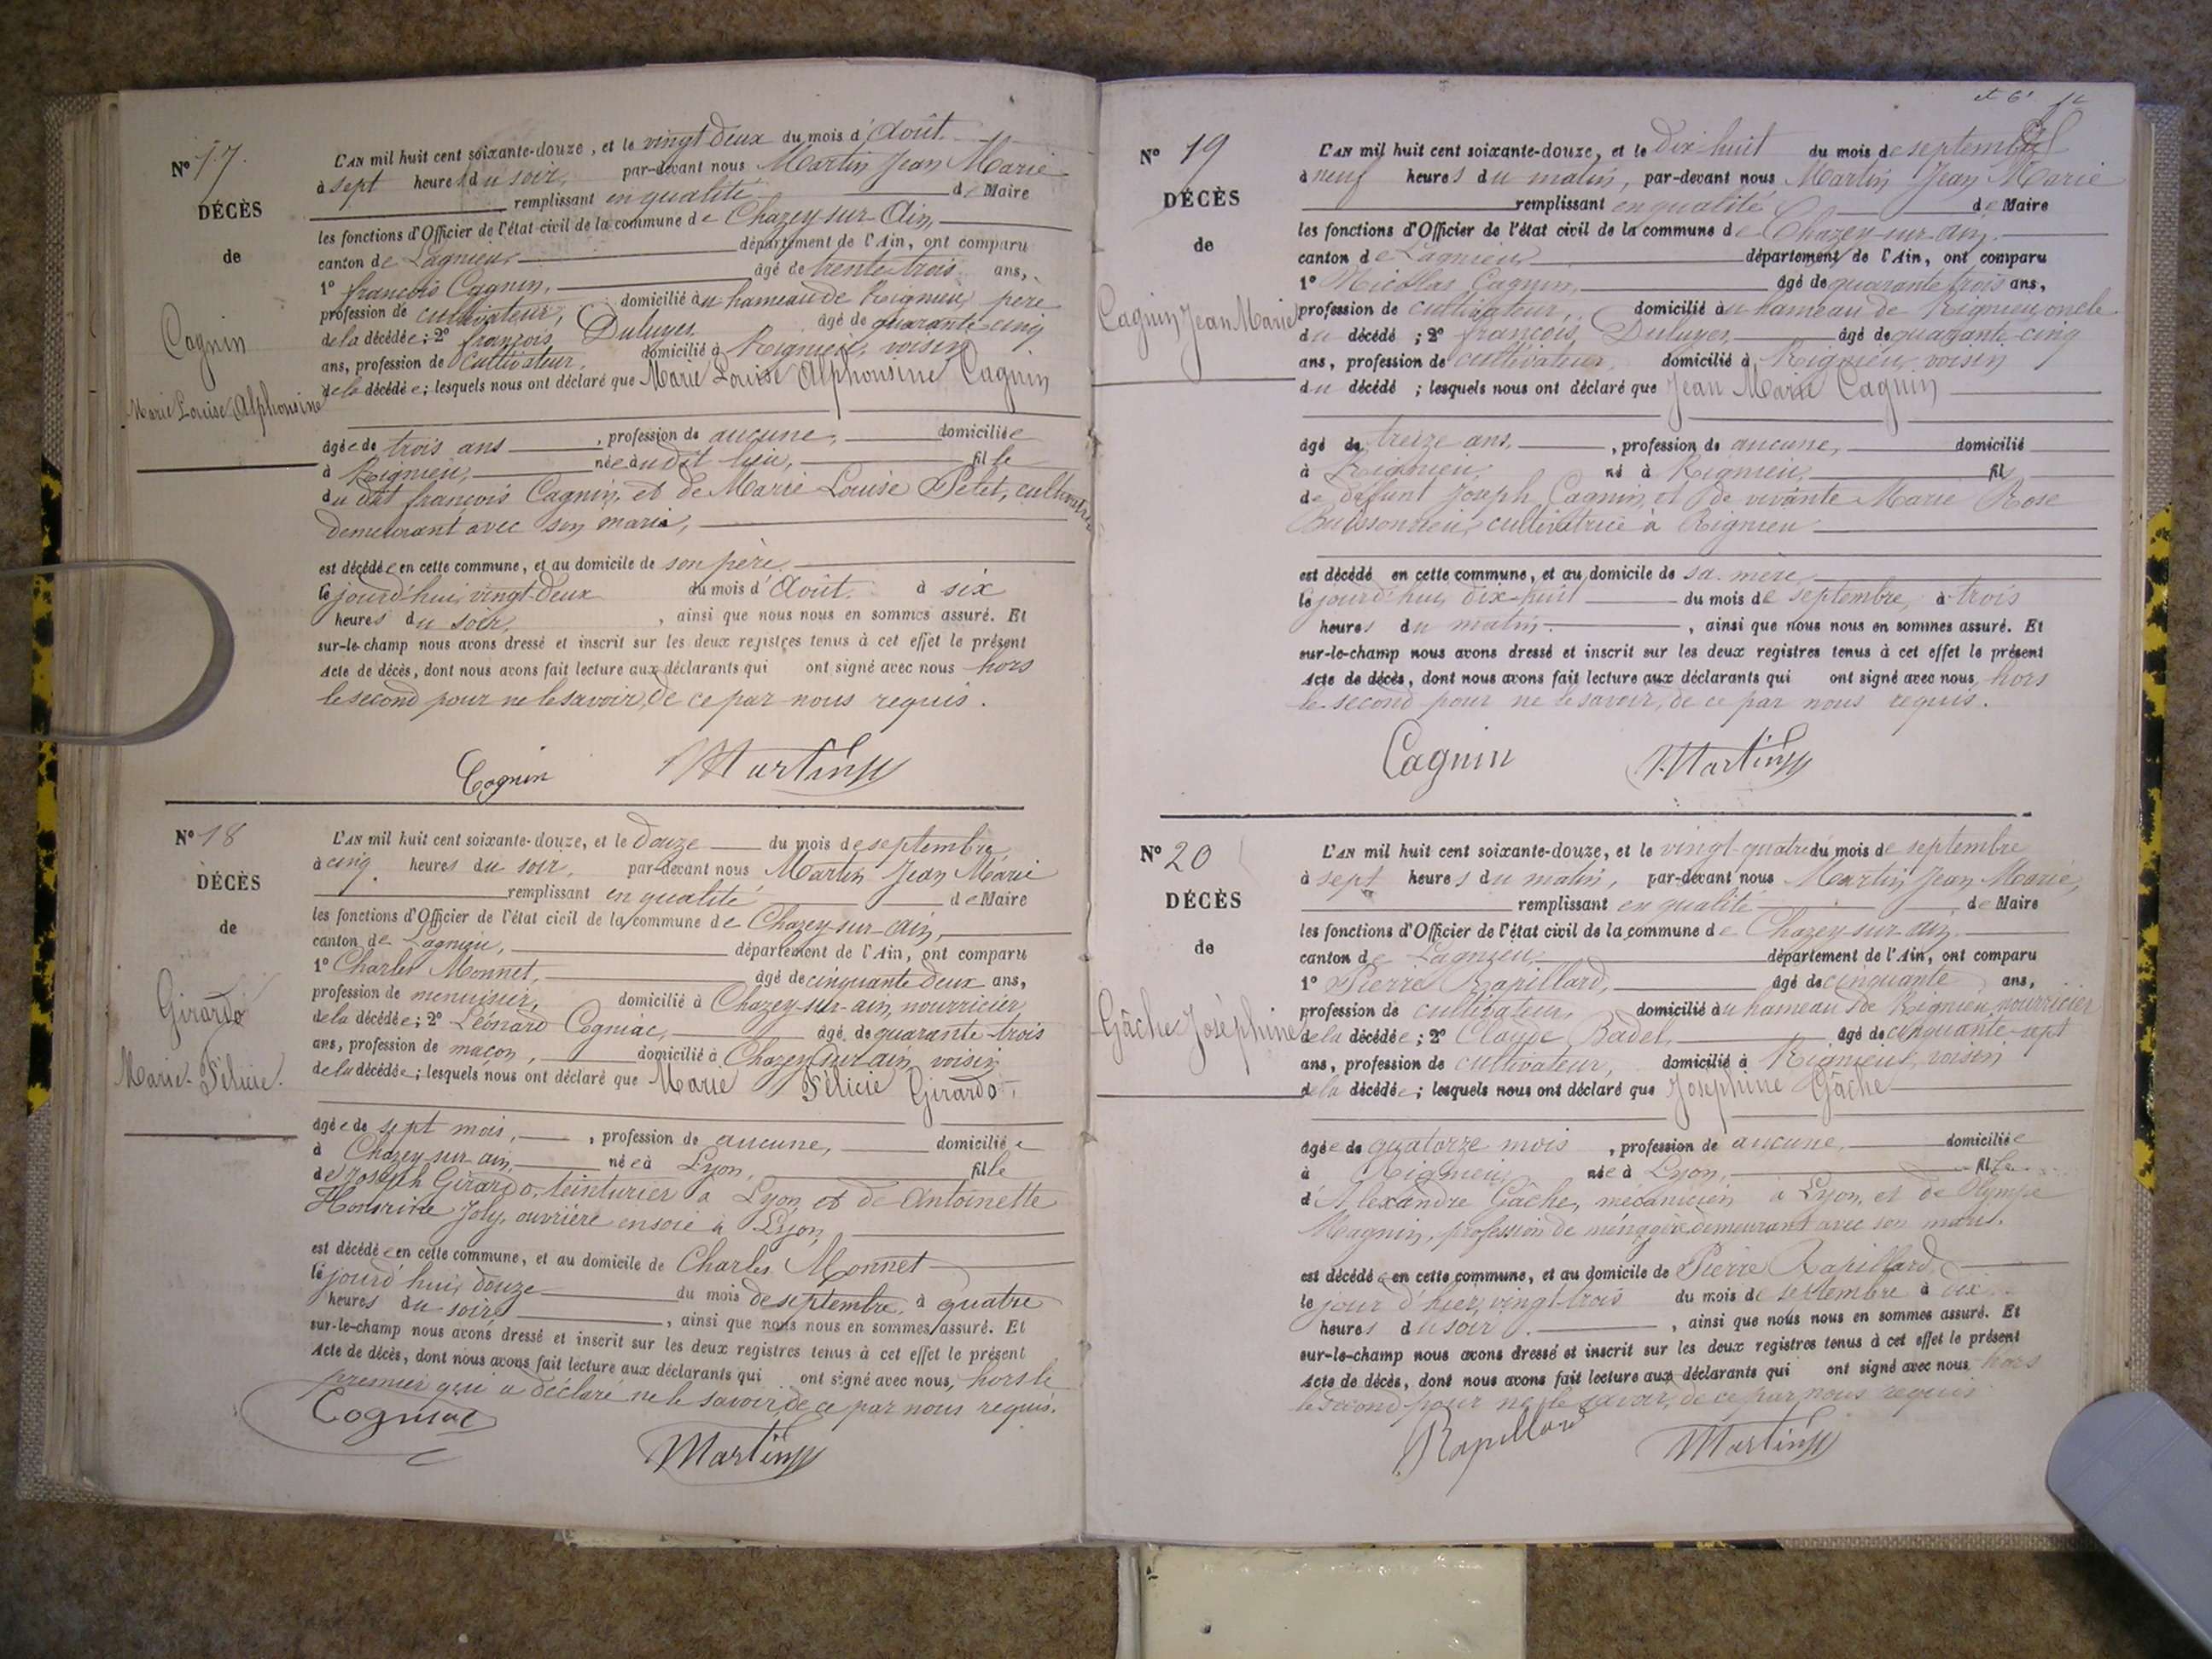 N° 17.
DÉCÈS
de
Cagnin
Marie Louise Alphonsine
L'AN mil huit cent soixante-douze, et le vingt deux du mois d'Août
à sept heures du soir, par-devant nous Martin Jean Marie
remplissant en qualité de Maire
les fonctions d'Officier de l'état civil de la commune de Chazey-sur-Ain,
canton de Lagnieu département de l'Ain, ont comparu
1° françois Cagnin, âgé de trente trois ans,
profession de cultivateur, domicilié au hameau de Rignieu, père
de la décédée; 2° françois Duluyer âgé de quarante cinq
ans, profession de cultivateur, domicilié à Rignieu, voisin
de la décédée; lesquels nous ont déclaré que Marie Louise Alphonsine Cagnin
âgée de trois ans, profession de aucune, domiciliée
à Rignieu, née au dit lieu, fille
du dit françois Cagnin, et de Marie Louise Petit, cultivatrice
demeurant avec son mari,
est décédée en cette commune, et au domicile de son père
le jourd'hui vingt-deux du mois d'Août à six
heures du soir, ainsi que nous nous en sommes assuré. Et
sur-le-champ nous avons dressé et inscrit sur les deux registres tenus à cet effet le présent
Acte de décès, dont nous avons fait lecture aux déclarants qui ont signé avec nous hors
le second pour ne le savoir, de ce par nous requis.
Cagnin Martin
N° 18
DÉCÈS
de
Girardo
Marie-Félicie.
L'AN mil huit cent soixante-douze, et le douze du mois de septembre
à cinq heures du soir, par-devant nous Martin Jean Marie
remplissant en qualité de Maire
les fonctions d'Officier de l'état civil de la commune de Chazey-sur-Ain,
canton de Lagnieu, département de l'Ain, ont comparu
1° Charles Monnet, âgé de cinquante deux ans,
profession de menuisier, domicilié à Chazey-sur-ain, nourricier
de la décédée; 2° Léonard Cogniac, âgé de quarante-trois
ans, profession de maçon, domicilié à Chazey sur ain, voisin
de la décédée; lesquels nous ont déclaré que Marie Félicie Girardo,
âgée de sept mois, profession de aucune, domiciliée
à Chazey-sur-ain, née à Lyon, fille
de Joseph Girardo, teinturier à Lyon, et de Antoinette
Joly, ouvrière en soie à Lyon,
est décédée en cette commune, et au domicile de Charles Monnet
le jourd'hui, douze du mois de septembre, à quatre
heures du soir, ainsi que nous nous en sommes assuré. Et
sur-le-champ nous avons dressé et inscrit sur les deux registres tenus à cet effet le présent
Acte de décès, dont nous avons fait lecture aux déclarants qui ont signé avec nous, hors le
premier qui a déclaré ne le savoir, de ce par nous requis.
Cogniac
Martin
N° 19
DÉCÈS
de
Cagnin Jean Marie
L'AN mil huit cent soixante-douze, et le dix huit du mois de septembre
à neuf heures du matin, par-devant nous Martin Jean Marie
remplissant en qualité de Maire
les fonctions d'Officier de l'état civil de la commune de Chazey-sur-ain,
canton de Lagnieu département de l'Ain, ont comparu
1° Nicolas Cagnin, âgé de quarante trois ans,
profession de cultivateur, domicilié au hameau de Rignieu, oncle
du décédé; 2° françois Duluyer, âgé de quarante-cinq
ans, profession de cultivateur, domicilié à Rignieu, voisin
du décédé; lesquels nous ont déclaré que Jean Marie Cagnin
âgé de treize ans, profession de aucune, domicilié
à Rignieu, né à Rignieu, fils
de défunt Joseph Cagnin, et de vivante Marie Rose
cultivatrice à Rignieu
est décédé en cette commune, et au domicile de sa mère,
le jourd'hui, dix-huit du mois de septembre, à trois
heures du matin, ainsi que nous nous en sommes assuré. Et
sur-le-champ nous avons dressé et inscrit sur les deux registres tenus à cet effet le présent
Acte de décès, dont nous avons fait lecture aux déclarants qui ont signé avec nous, hors
le second pour ne le savoir, de ce par nous requis.
Cagnin Martin
N° 20
DÉCÈS
de
Gâche Joséphine
L'AN mil huit cent soixante-douze, et le vingt-quatre du mois de septembre
à sept heures du matin, par-devant nous Martin Jean Marie,
remplissant en qualité de Maire
les fonctions d'Officier de l'état civil de la commune de Chazey-sur-ain,
canton de Lagnieu, département de l'Ain, ont comparu
1° Pierre Rapillard, âgé de cinquante ans,
profession de cultivateur, domicilié au hameau de Rignieu, nourricier
de la décédée; 2° Claude Badel, âgé de cinquante-sept
ans, profession de cultivateur, domicilié à Rignieu, voisin
de la décédée; lesquels nous ont déclaré que Joséphine Gâche
âgée de quatorze mois, profession de aucune, domiciliée
à Rignieu, née à Lyon, fille
d'Alexandre Gâche, mécanicien à Lyon, et de Olympe
Magnin, profession de ménagère demeurant avec son mari.
est décédée en cette commune, et au domicile de Pierre Rapillard,
le jour d'hier, vingt-trois du mois de septembre à six
heures du soir, ainsi que nous nous en sommes assuré. Et
sur-le-champ nous avons dressé et inscrit sur les deux registres tenus à cet effet le présent
Acte de décès, dont nous avons fait lecture aux déclarants qui ont signé avec nous hors
le second pour ne le savoir, de ce par nous requis
Rapillard Martin